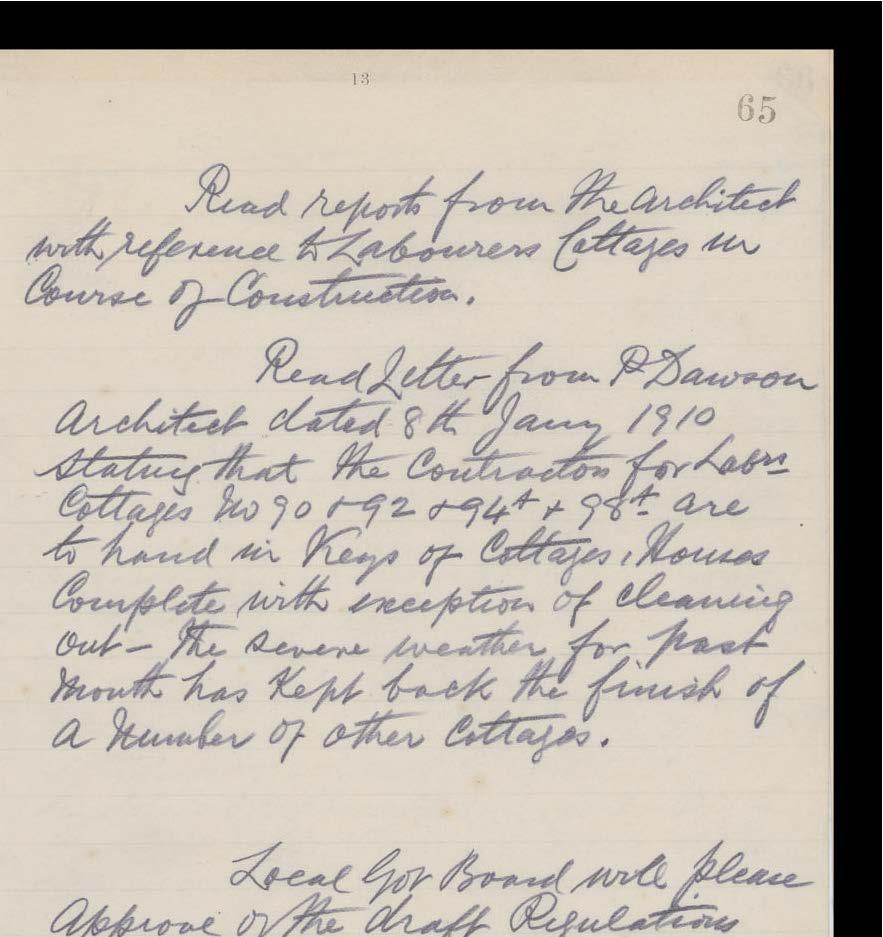 13
65
Read reports from the Architect
with reference to Labourers Cottages in
Course of Construction.
Read Letter from P Dawson
Architect dated 8th Jany 1910
stating that the Contractors for Labrs
Cottages No 90 + 92 + 94A + 98A are
to hand in Keys of Cottages, Houses
Complete with exception of cleaning
out – The severe weather for past
Month has Kept back the finish of
a Number of other Cottages.
Local Gov Board will please
Approve of the draft Regulations